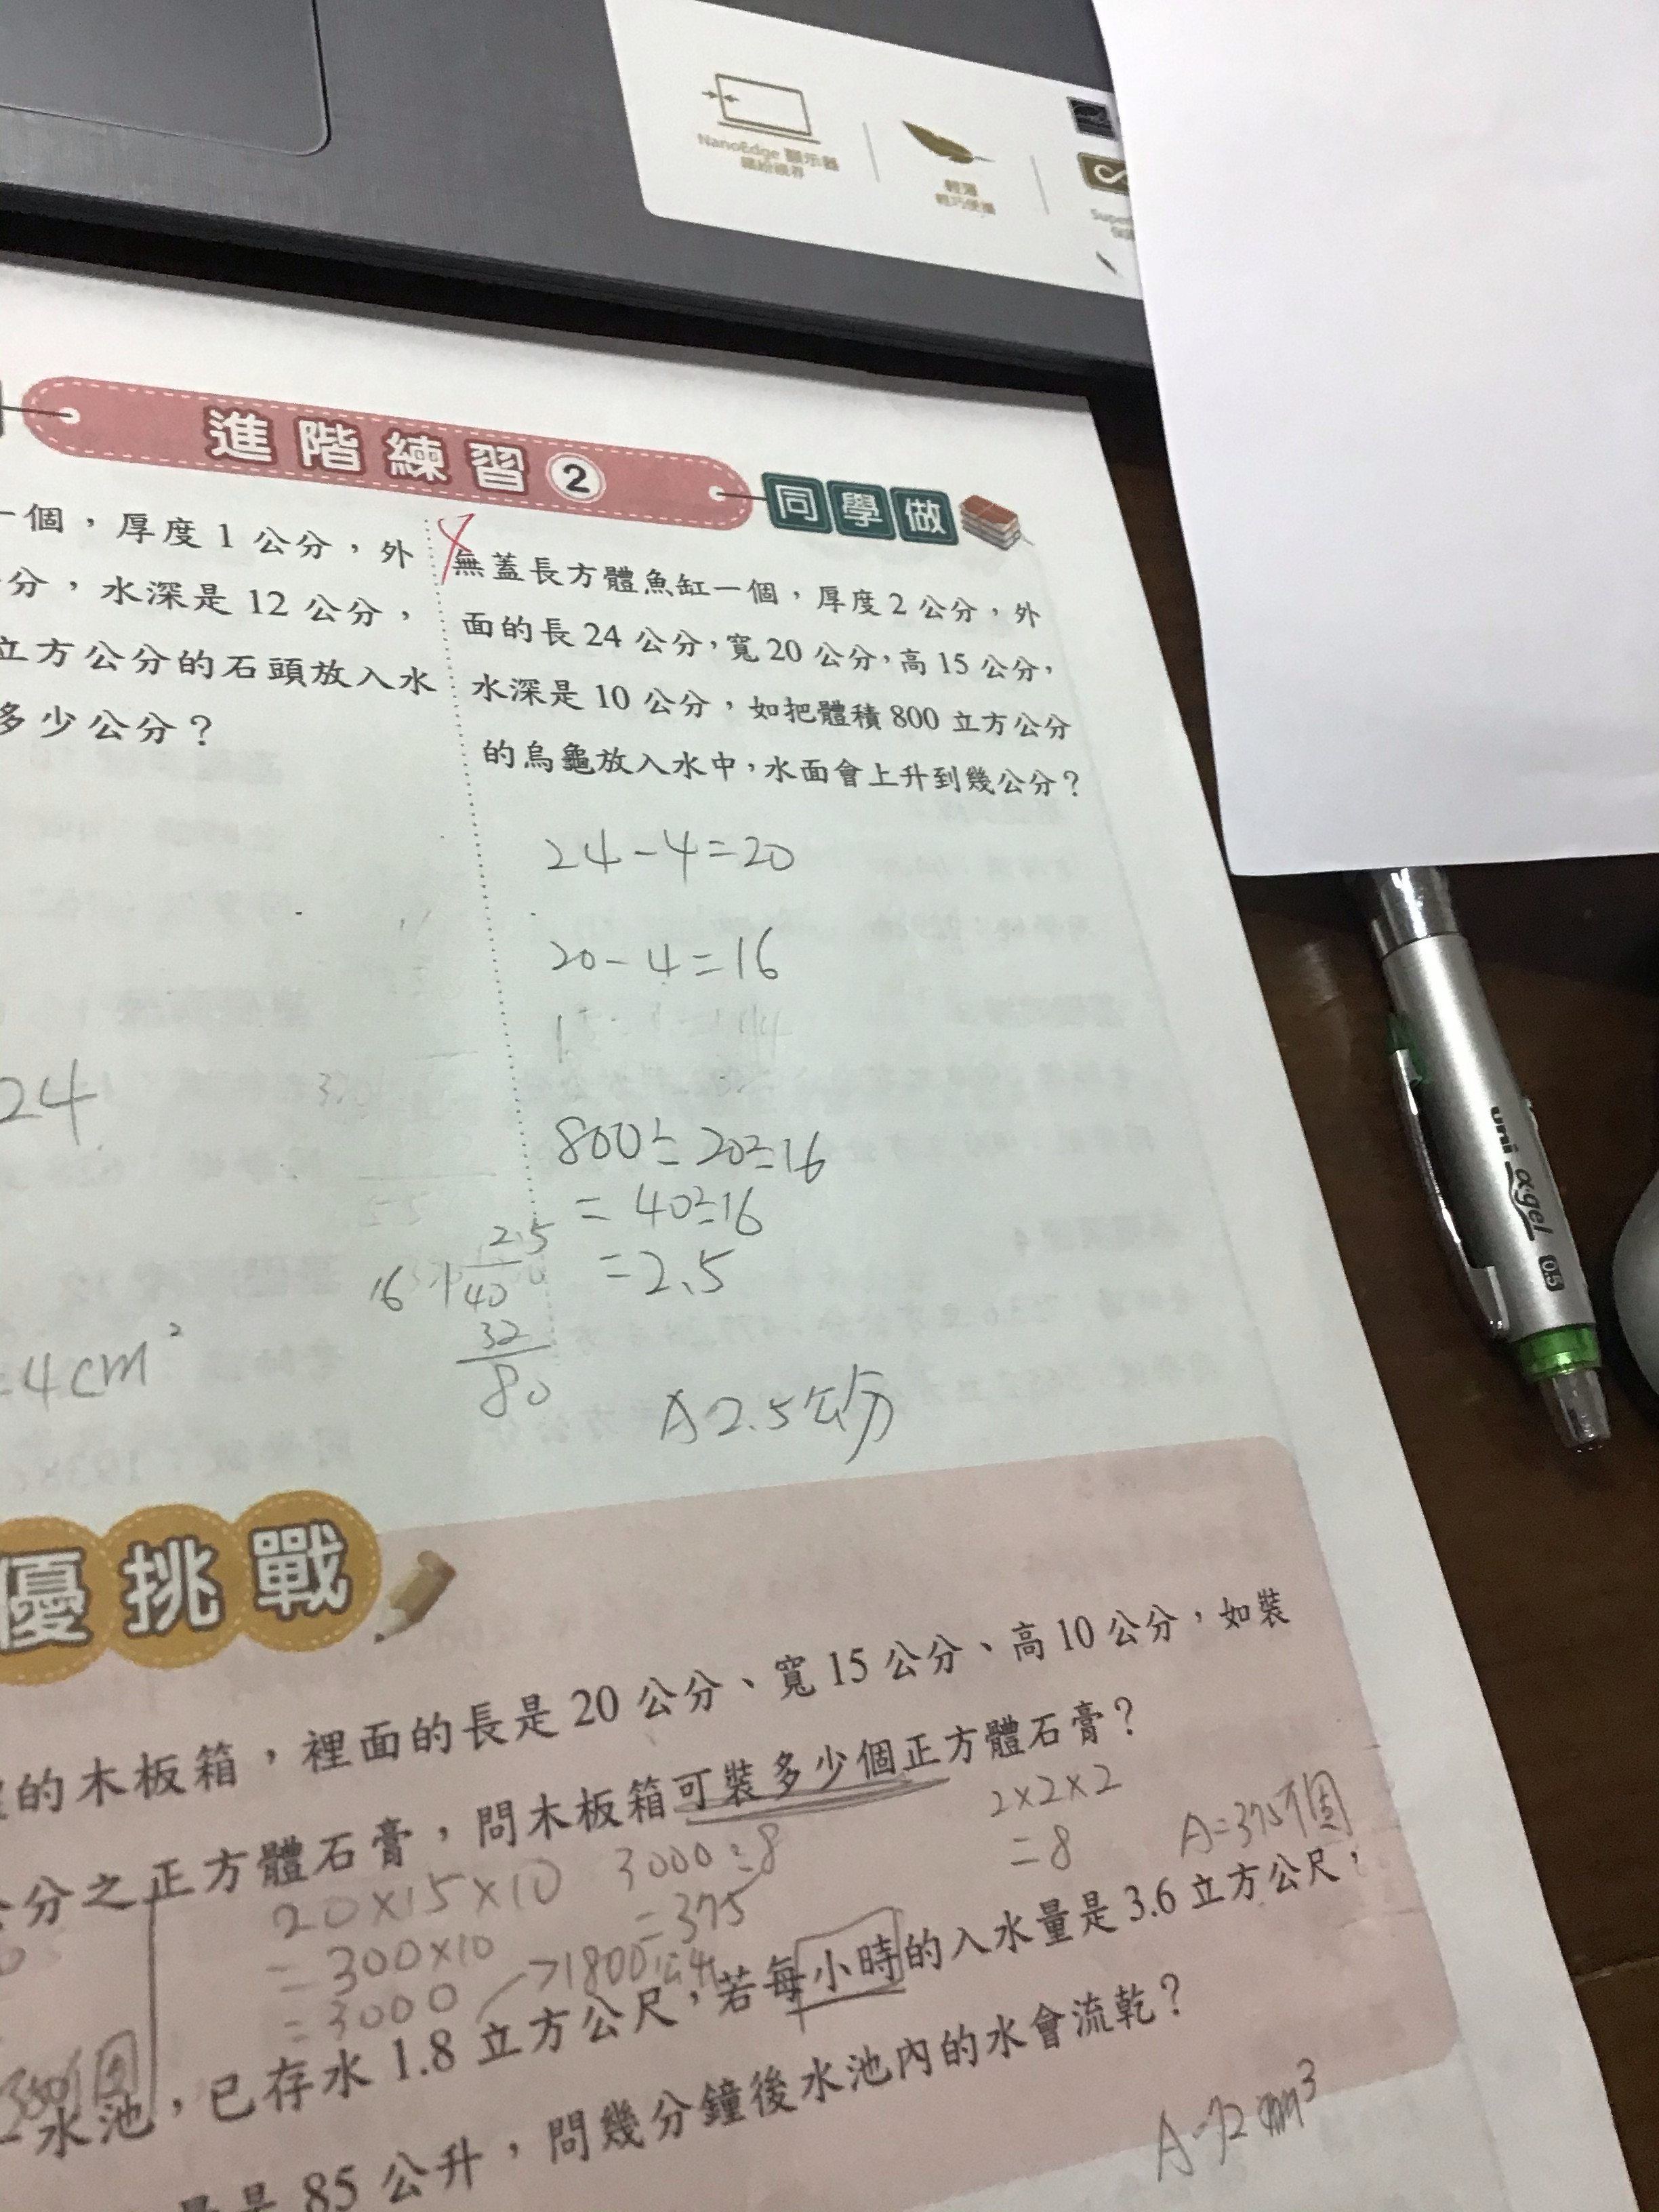 NanoEdge 顯示器
繽紛視界
輕薄
輕巧便攜
進階練習②
同學做
一個，厚度1公分，外
分，水深是12公分，
立方公分的石頭放入水
多少公分？
無蓋長方體魚缸一個，厚度2公分，外
面的長24公分，寬20公分，高15公分，
水深是10公分，如把體積800立方公分
的烏龜放入水中，水面會上升到幾公分？
24-4=20
20-4=16
24
800÷20÷16
=40÷16
=2.5
2.5
16 40
32
80
=4cm²
A 2.5公分
優挑戰
的木板箱，裡面的長是20公分、寬15公分、高10公分，如裝
公分之正方體石膏，問木板箱可裝多少個正方體石膏？
2×2×2
=8
A=375個
20×15×10
=300×10
=3000
3000÷8
=375
→1800公升
水池，已存水1.8立方公尺，若每小時的入水量是3.6立方公尺，
量是85公升，問幾分鐘後水池內的水會流乾？
uni α·gel 0.5